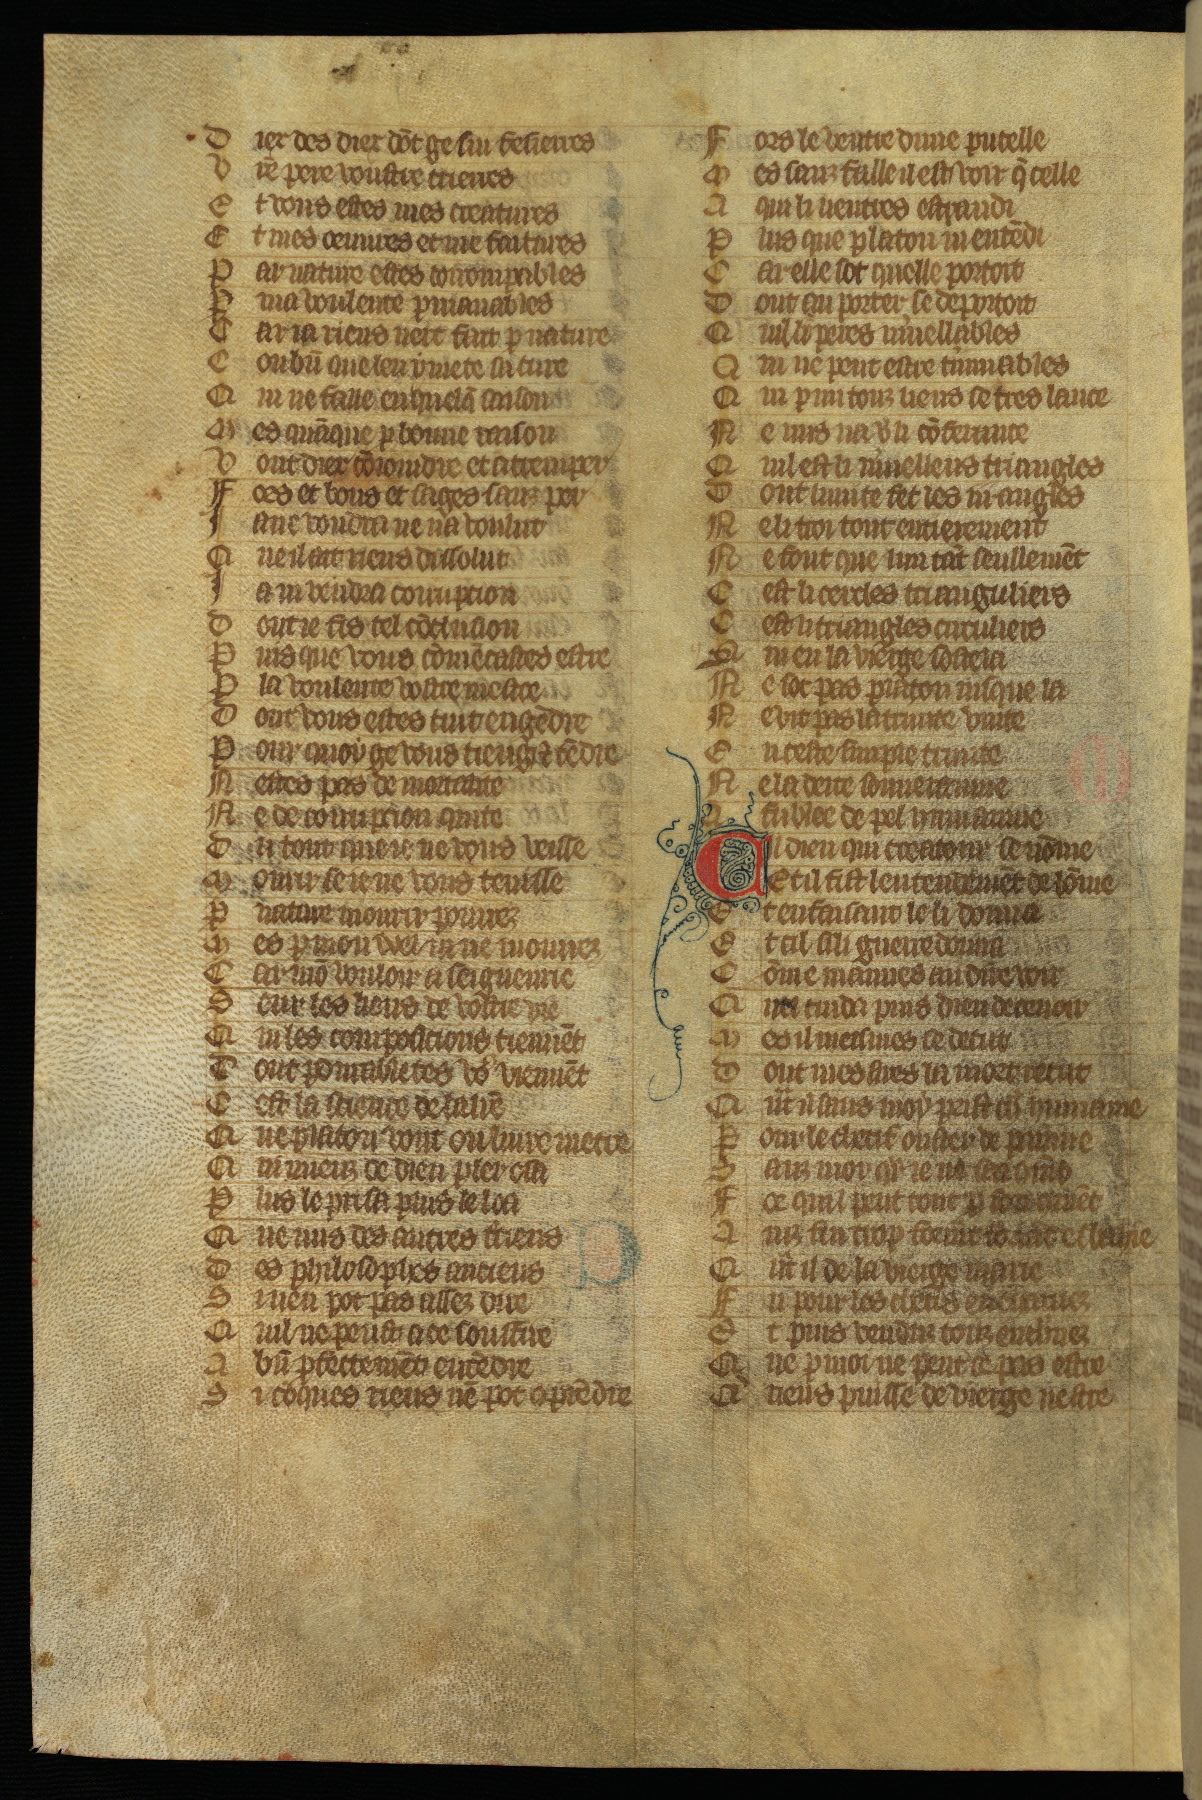 D iex des diex dōt ge sui feserres
V rē pere voustre crieres
E t vous estes mes creatures
E t mes œuvres et me faitures
P ar nature estes corrompables
P ma voulente pmanables
C ar ia riens niert fait p nature
C ōbñ que leur y mete sa cure
Q ui ne faille en quelq̄ saison
M es quāque p bonne raison
V out diex cōioindre et atremper
F ors et bons et sages sanz per
I a ne voudra ne na voulut
Q ue il ait riens dissolut
I a ni vendra corrupcion
D ont ie fas tel cōclusion
P uis que vous cōmēcastes estre
P la voulente vostre mestre
D ont vous estes tuit engēdre
P our quoy ge vous tieng et tēdre
N estes pas de mortalite
N e de corrupcion quite
D u tout que ie ne vous veisse
M ourir se ie ne vous tenisse
P nature mourir pourrez
M es p mon veul ia ne mourrez
C ar mō vouloir a seigneurie
S eur les liens de vostre vie
Q ui les composicions tiennēt
D ont pdurabletes vo viennēt
C est la sentence de la lrē
Q ue platon vout ou livre metre
Q ui mieuz de dieu pler osa
P lus le prisa plus le losa
Q ue nus des autres terriens
D es philosophes anciens
S i nen pot pas assez dire
Q uil ne peust a ce souffire
A bñ pfectemēt entēdre
S i cōques riens ne pot cōprēdre
F ors le ventre dune pucelle
M es sanz faille il est voir q̄ celle
A qui li ventres estandi
P lus que platon ni entēdi
C ar elle sot quelle portoit
D ont au porter se deportoit
Q uil li peres mervellables
Q ui ne peut estre terminables
Q ui p mi touz lieus ses tres lance
N e nus na v li cōferance
Q uil est li mervelleus triangles
D ont lunite fet les iii angles
N e li troi tout entierement
N e sont que lun tāt seullemēt
C est li cercles trianguliers
C est li triangles circuliers
Q ui en la vierge sostela
N e sot pas platon iusque la
N e vit pas la trinite unite
E n ceste simple trinite
N e la deite souveraine
A fublee de pel humainne
C il dieu qui creatour se nōme
C etil fist lentendemēt de lōme
E t en faisant le li donna
E t cil si li guerredonna
C ōme mauves au dire voir
Q uel cuida puis dieu decevoir
M es il meismes se decut
D ont mes sires la mort recut
Q uāt il sans moy prist char humainne
P our le chetif ouster de painne
S anz moy car ie ne sai cōmēt
F ors quil peut tout p son cōmāt
A inz fui trop formēt esbahie
Q uāt il de la vierge marie
F u pour les chetis encharnez
E t puis pendus touz encharnez
Q ue p moi ne peut ce pas estre
Q riens puisse de vierge nestre